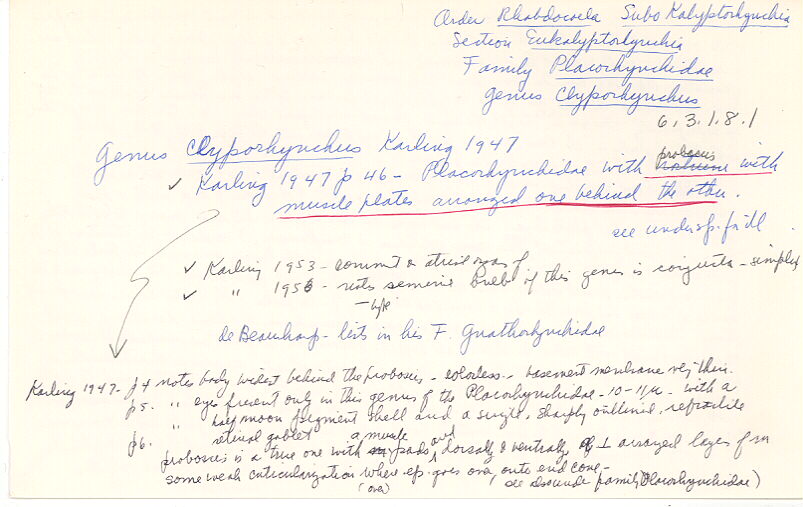 Order Rhabdocoela Subo Kalyptorhynchia
Section Eukalyptorhynchia
Family Placorhynchidae
Genus Clyporhynchus
6.3.1.8.1
Genus Clyporhynchus Karling 1947
✓ Karling 1947 p 46 - Placorhynchidae with proboscis with
muscle plates arranged one behind the other.
see under sp.
✓ Karling 1953 - comment on atrial organ of
✓ " 1956 - notes seminal bulb of this genus is conjuncta - simplex
- type
de Beauchamp - lists in his F. Gnathorhynchidae
Karling 1947 - p 4 notes body widest behind the proboscis - colorless - basement membrane very thin.
p5. " eyes present only in this genus of the Placorhynchidae - 10-11 µ - with a
" half moon pigment shell and a single, sharply outlined, refractile
p6. " retinal goblet
proboscis is a true one with a muscle pads, dorsally & ventrally, and ⊥ arranged layers of m
some weak cuticularization where ep. goes over onto end cone -
(over) see also under family (Placorhynchidae)